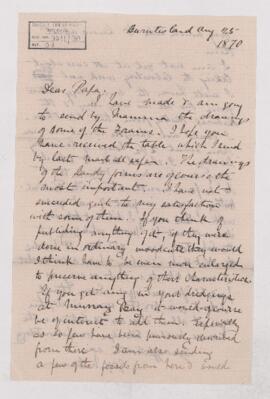 Burntisland Aug 25
1870
Dear Papa.
I have made & am going
to send by Mamma the drawings
of some of the Forams. I hope you
have received the table which I send
by last mail all safe. The drawings
of the Sandy forms are of course the
most important. I have not
succeeded quite to my satisfaction
with some of them. If you think of
publishing anything of it, if they were
done in ordinary woodcuts they would
I think have to be even more enlarged
to preserve anything of their characteristics.
If you get any in your dredgings
at Murray Bay it would of course
be of interest to add them. Especially
as so few have been previously recorded
from there. I am also sending
a few of the fossils from here I would